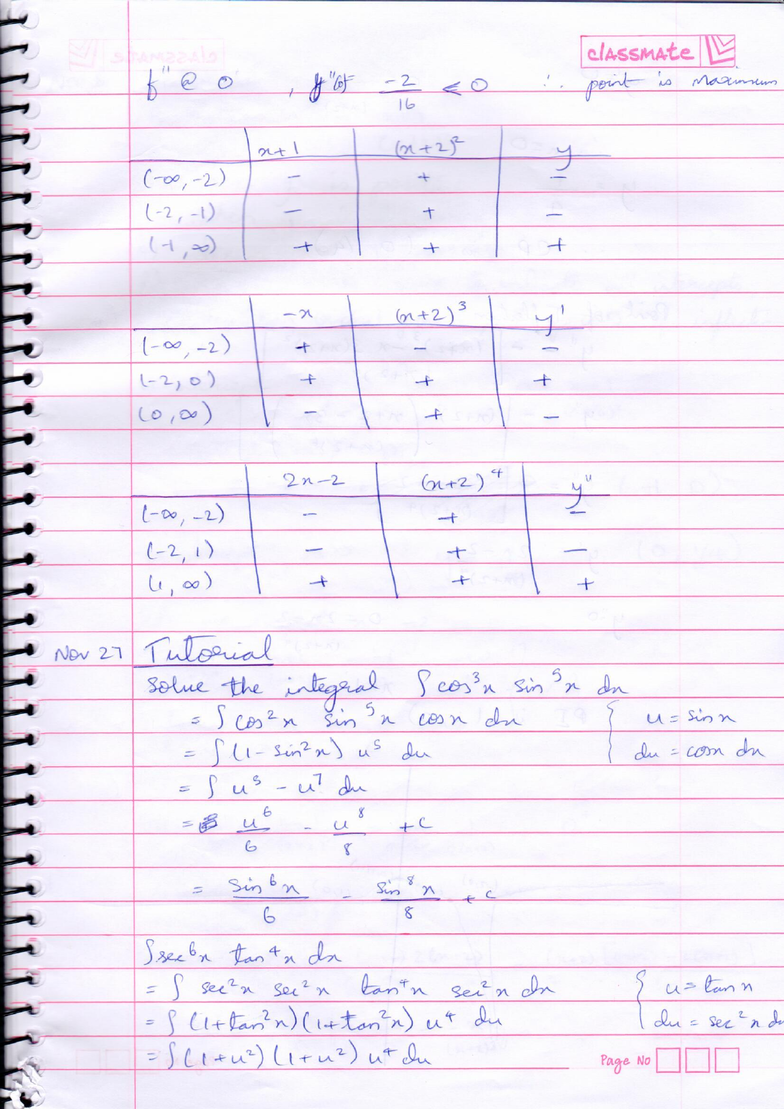 classmate
f" @ 0 , y"(0)= -2/16 < 0 ∴ point is Maximum
x+1 (x+2)² y
(-∞, -2) - + -
(-2, -1) - + -
(-1, ∞) + + +
-x (x+2)³ y'
(-∞, -2) + - -
(-2, 0) + + +
(0, ∞) - + -
2x-2 (x+2)⁴ y"
(-∞, -2) - + -
(-2, 1) - + -
(1, ∞) + + +
Nov 27 Tutorial
Solve the integral ∫ cos³x sin⁵x dx
= ∫ cos²x sin⁵x cosx dx { u = sinx
= ∫ (1-sin²x) u⁵ du du = cosx dx
= ∫ u⁵ - u⁷ du
= u⁶/6 - u⁸/8 + c
= sin⁶x/6 - sin⁸x/8 + c
∫ sec⁶x tan⁴x dx
= ∫ sec²x sec²x tan⁴x sec²x dx { u = tanx
= ∫ (1+tan²x)(1+tan²x) u⁴ du du = sec²x dx
= ∫ (1+u²)(1+u²) u⁴ du
Page No